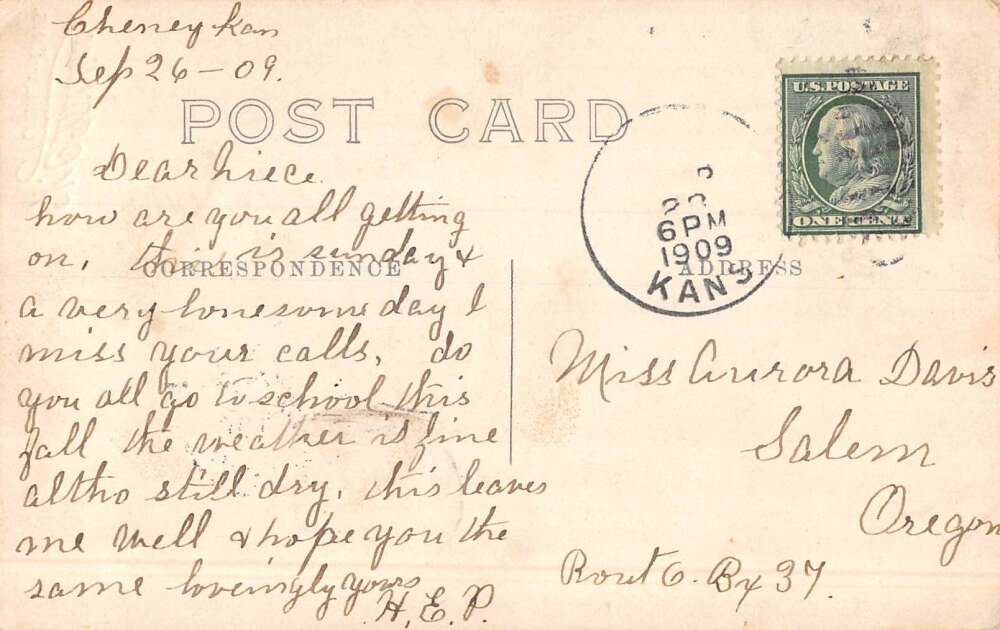 Cheney Kan
Sep 26-09.
POST CARD
Dear niece
how are you all getting
on, this is sunday &
CORRESPONDENCE
a very lonesome day I
miss your calls, do
you all go to school this
fall the weather is fine
altho still dry, this leaves
me well & hope you the
same loveingly yours
H. E. P.
U.S. POSTAGE
ONE CENT
6 PM
1909
KANS
ADDRESS
Miss Aurora Davis
Salem
Oregon
Rout 6. Bx 37.